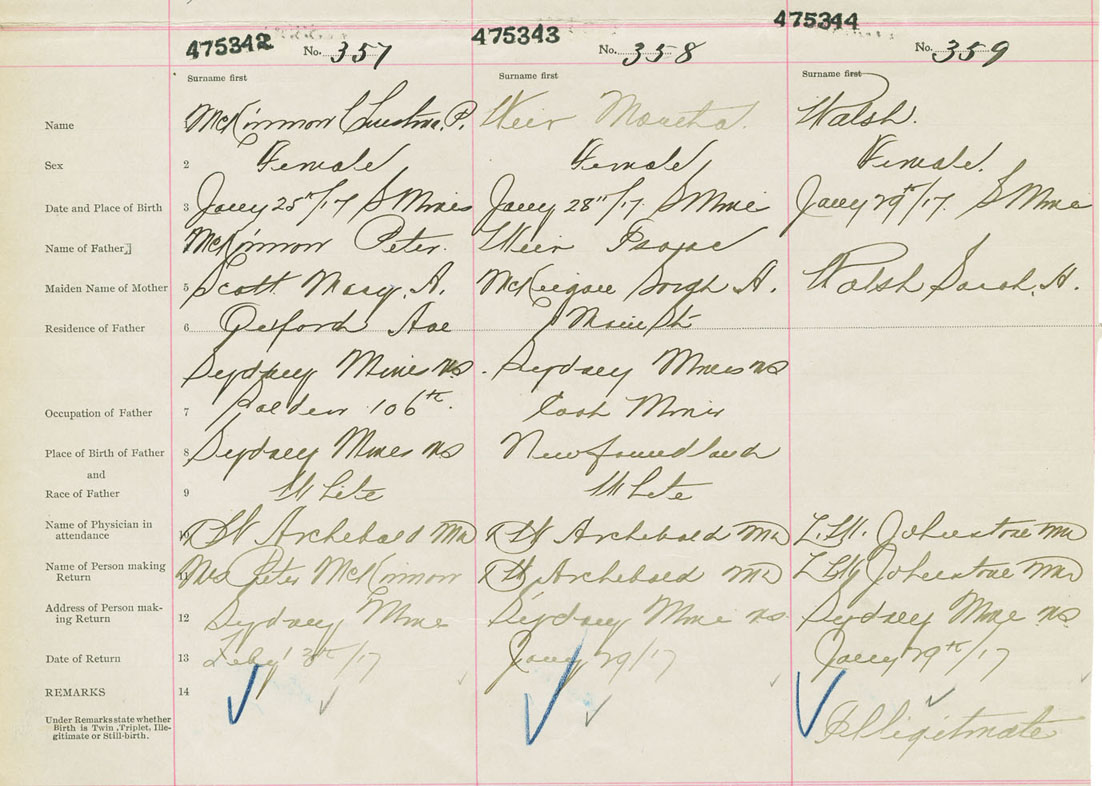 475342 No. 357 475343 No. 358 475344 No. 359
Surname first Surname first Surname first
Name McKinnon P. Weir Walsh.
Sex 2 Female Female Female.
Date and Place of Birth 3 Jany 25th/17 S Mines Jany 28th/17. S Mine Jany 29th/17. S Mine
Name of Father McKinnon Peter. Weir Isaac
Maiden Name of Mother 5 Scott Mary. A. A. Walsh Sarah. A.
Residence of Father 6 Oxford Ave Main St
Sydney Mines NS. Sydney Mines NS
Occupation of Father 7 106th. Coal Miner
Place of Birth of Father 8 Sydney Mines NS Newfoundland
and
Race of Father 9 White White
Name of Physician in
attendance 10 Archebald MD Archebald MD Johnstone MD
Name of Person making
Return 11 Mrs Peter McKinnon Archebald MD Johnstone MD
Address of Person mak-
ing Return 12 Sydney Mine Sydney Mine NS. Sydney Mine NS
Date of Return 13 Feby /17 Jany 29/17 Jany 29th/17
REMARKS 14
Under Remarks state whether
Birth is Twin, Triplet, Ille-
gitimate or Still-birth. Illigitmate